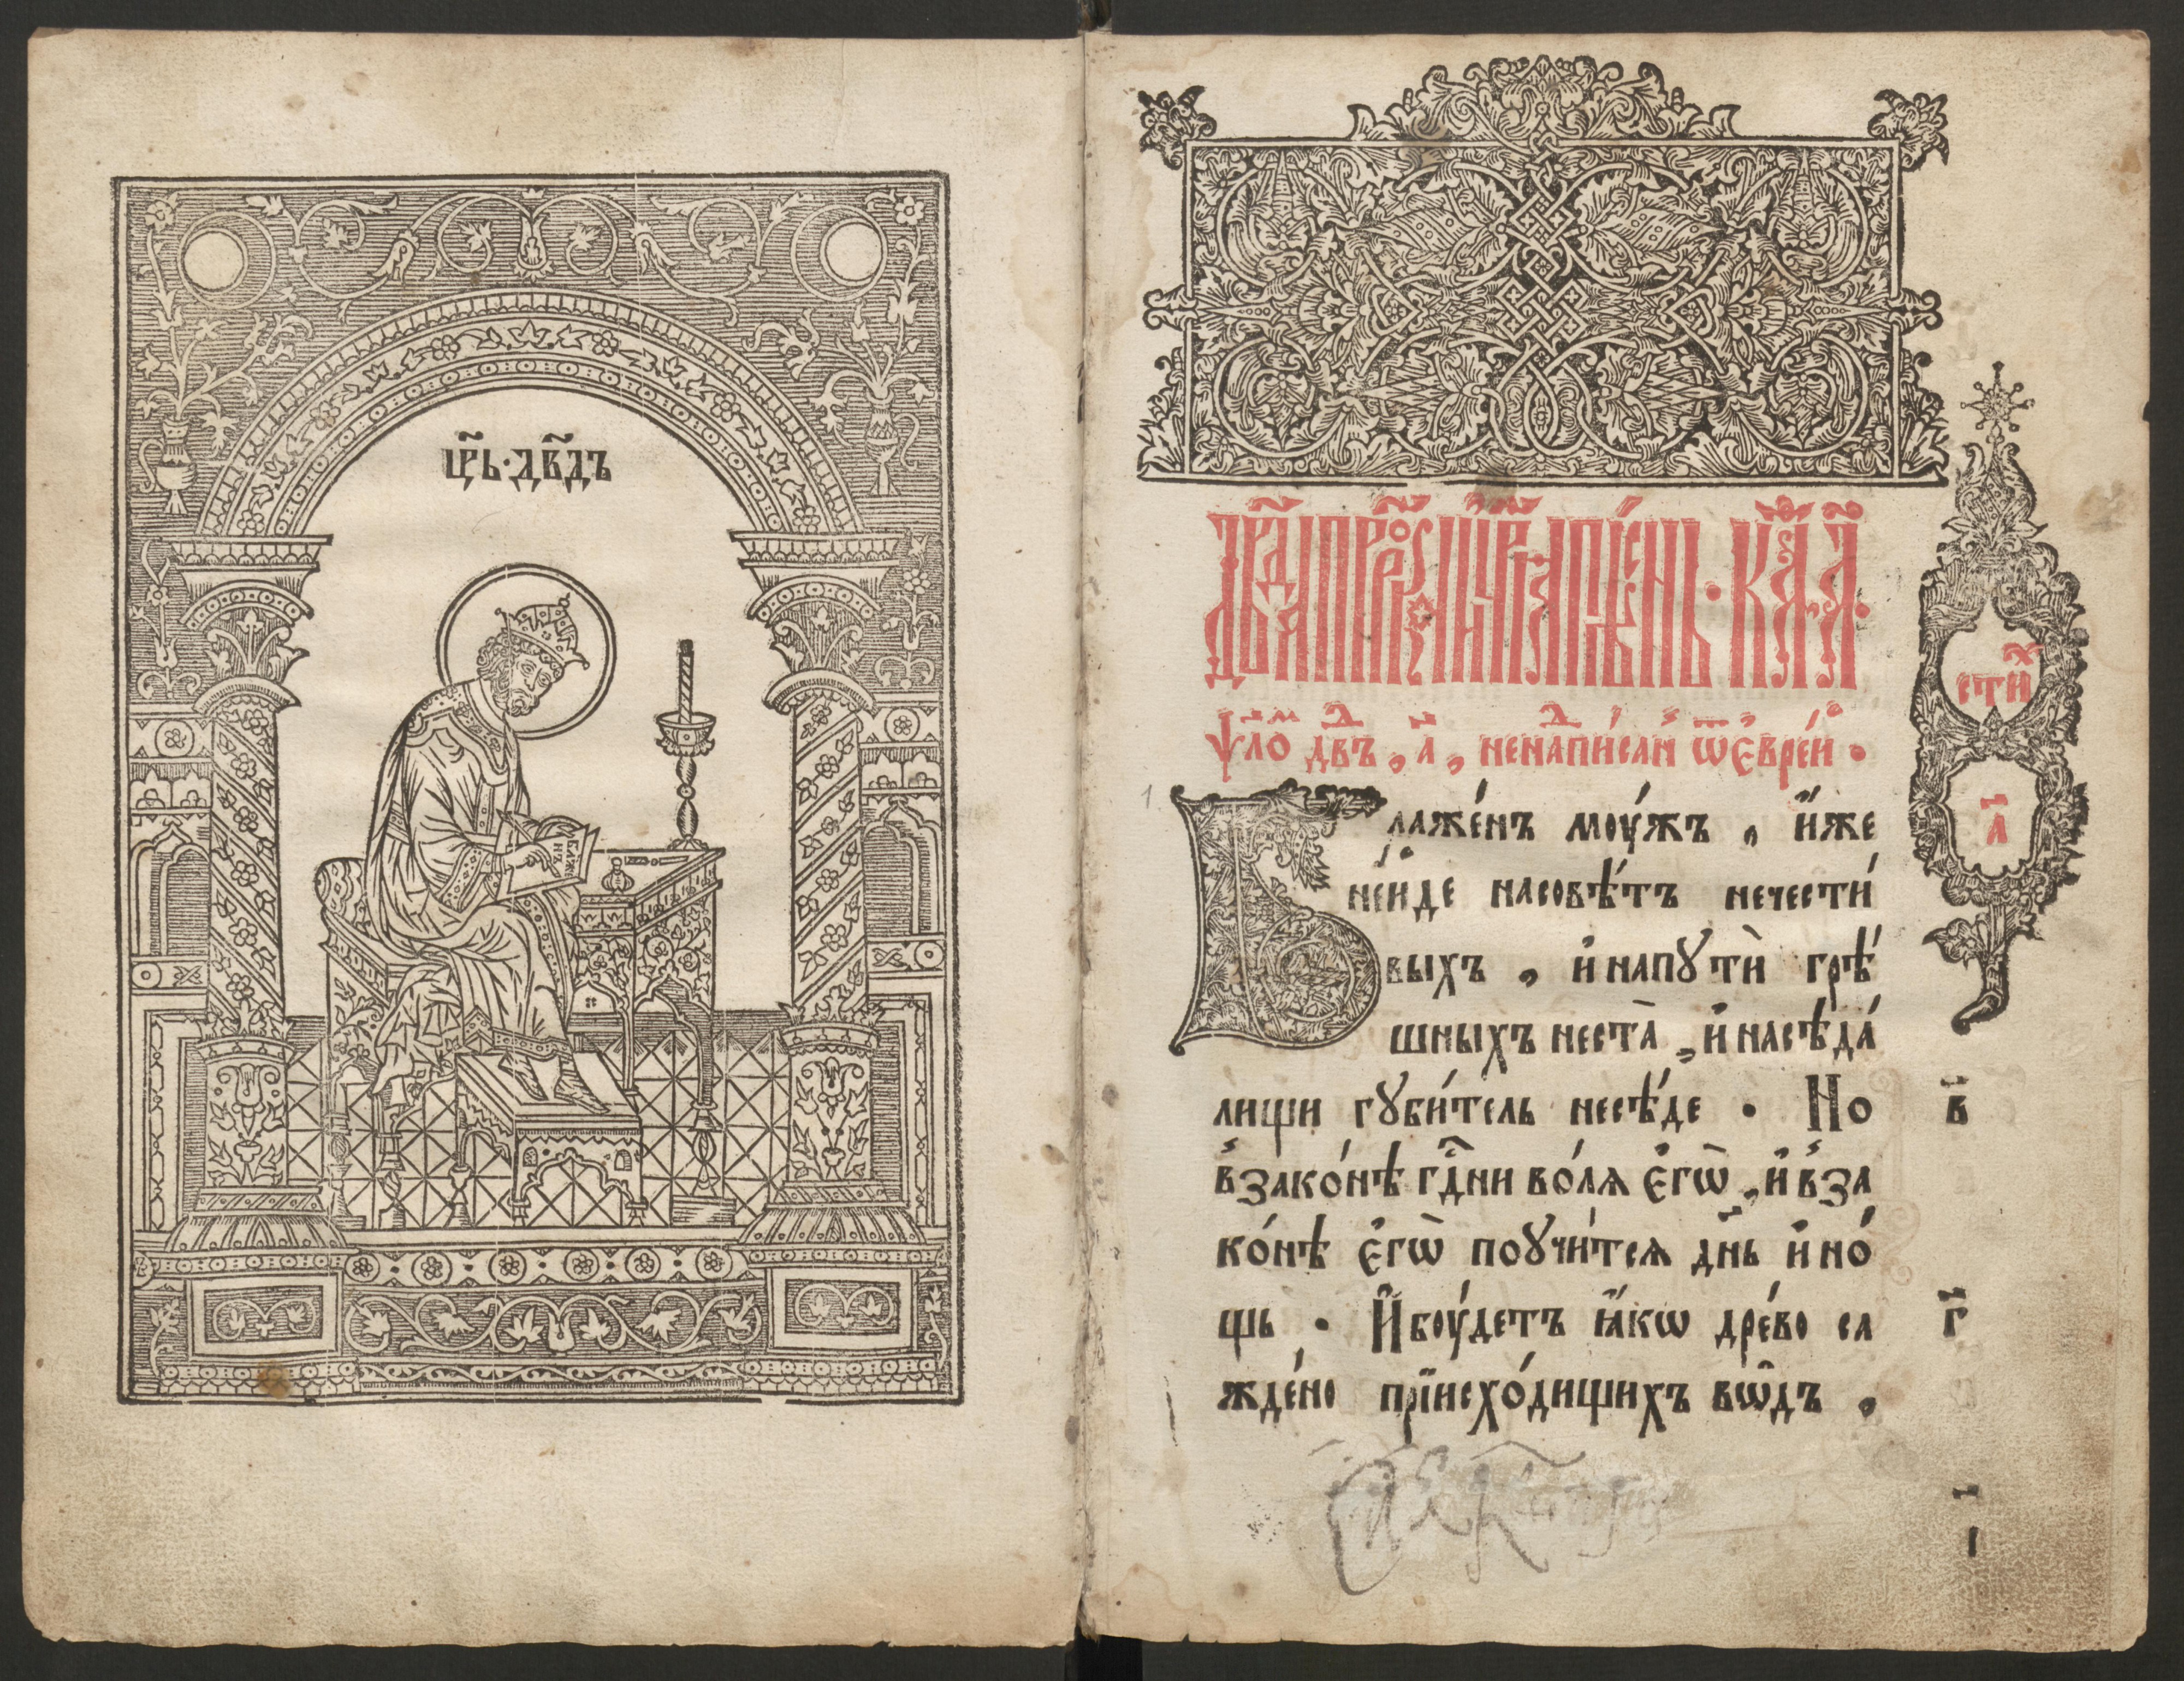 цр҃ь · дв҃дъ
БЛАЖЕ
НЪ
дв҃да прⷪ҇рка и҆ цр҃ѧ пѣ́снь · каѳ҇ . а҃ .
ѱⷧ҇ало́мъ дв҃дъ , а҃ , ненапи́санъ ѿ є҆врє́й ·
стиⷯ
а҃
Блаже́нъ моу́жъ , и҆́же
не и҆́де насовѣ́тъ нечести́
выхъ , и҆ напꙋтѝ грѣ́
шныхъ неста̀ , и҆ насѣда́
лищи гꙋби́тель несѣ́де · Но
в҃
в҆зако́нѣ гдⷭ҇ни во́лѧ є҆гѡ̀ , и҆ в҆за
ко́нѣ є҆гѡ̀ поꙋчи́тсѧ дн҃ь и҆ но́
щь · И҆ боу́детъ ꙗ҆́кѡ дре́во са
г҃
жде́но прїисхо́дищихъ вѡ́дъ ,
і҃